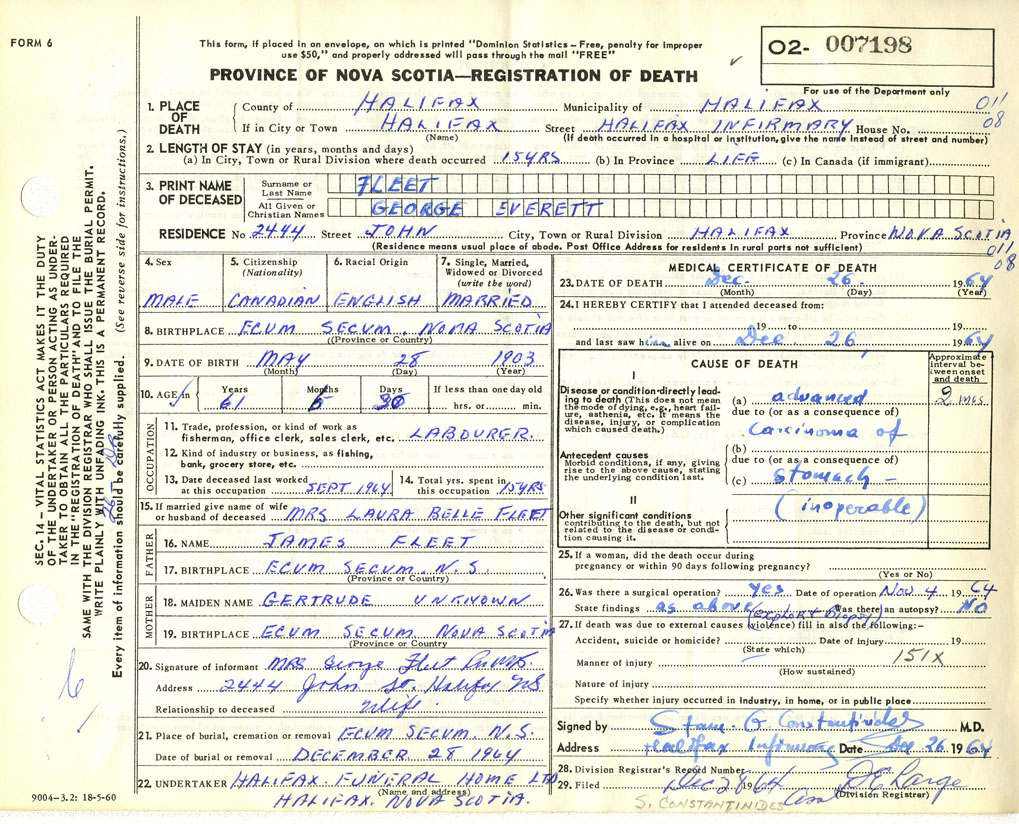 FORM 6
This form, if placed in an envelope, on which is printed "Dominion Statistics – Free, penalty for improper
use $50," and properly addressed will pass through the mail "FREE"
PROVINCE OF NOVA SCOTIA—REGISTRATION OF DEATH
O2- 007198
For use of the Department only
SEC. 14 – VITAL STATISTICS ACT MAKES IT THE DUTY
OF THE UNDERTAKER OR PERSON ACTING AS UNDER-
TAKER TO OBTAIN ALL THE PARTICULARS REQUIRED
IN THE "REGISTRATION OF DEATH" AND TO FILE THE
SAME WITH THE DIVISION REGISTRAR WHO SHALL ISSUE THE BURIAL PERMIT.
WRITE PLAINLY WITH UNFADING INK. THIS IS A PERMANENT RECORD.
Every item of information should be carefully supplied. (See reverse side for instructions.)
1. PLACE OF DEATH County of HALIFAX Municipality of HALIFAX 011
If in City or Town HALIFAX Street HALIFAX INFIRMARY House No. 08
(Name) (If death occurred in a hospital or institution, give the name instead of street and number)
2. LENGTH OF STAY (in years, months and days)
(a) In City, Town or Rural Division where death occurred 15 YRS (b) In Province LIFE (c) In Canada (if immigrant)
3. PRINT NAME OF DECEASED Surname or Last Name FLEET
All Given or Christian Names GEORGE EVERETT
RESIDENCE No 2444 Street JOHN City, Town or Rural Division HALIFAX Province NOVA SCOTIA
(Residence means usual place of abode. Post Office Address for residents in rural parts not sufficient) 011
08
4. Sex 5. Citizenship (Nationality) 6. Racial Origin 7. Single, Married, Widowed or Divorced (write the word)
MALE CANADIAN ENGLISH MARRIED
8. BIRTHPLACE ECUM SECUM, NOVA SCOTIA
(Province or Country)
9. DATE OF BIRTH MAY 28 1903
(Month) (Day) (Year)
10. AGE in Years Months Days If less than one day old
61 hrs. or min.
OCCUPATION
11. Trade, profession, or kind of work as
fisherman, office clerk, sales clerk, etc. LABOURER.
12. Kind of industry or business, as fishing,
bank, grocery store, etc.
13. Date deceased last worked at this occupation SEPT 1964 14. Total yrs. spent in this occupation 15 YRS
15. If married give name of wife
or husband of deceased MRS LAURA BELLE FLEET
FATHER
16. NAME JAMES FLEET
17. BIRTHPLACE ECUM SECUM, N.S.
(Province or Country)
MOTHER
18. MAIDEN NAME GERTRUDE UNKNOWN
19. BIRTHPLACE ECUM SECUM NOVA SCOTIA
(Province or Country)
20. Signature of informant MRS George Fleet
Address 2444 John St. Halifax NS
Relationship to deceased Wife
21. Place of burial, cremation or removal ECUM SECUM N.S.
Date of burial or removal DECEMBER 28 1964
22. UNDERTAKER HALIFAX FUNERAL HOME LTD
(Name and address)
HALIFAX. NOVA SCOTIA.
9004–3.2: 18-5-60
MEDICAL CERTIFICATE OF DEATH
23. DATE OF DEATH Dec. 26 1964
(Month) (Day) (Year)
24. I HEREBY CERTIFY that I attended deceased from:
19 to 19
and last saw him alive on Dec. 26 1964
CAUSE OF DEATH
Approximate interval between onset and death
I
Disease or condition directly lead-
ing to death (This does not mean
the mode of dying, e.g., heart fail-
ure, asthenia, etc. It means the
disease, injury, or complication
which caused death.)
(a) advanced 2 mos.
due to (or as a consequence of)
Carcinoma of
Antecedent causes
Morbid conditions, if any, giving
rise to the above cause, stating
the underlying condition last.
(b)
due to (or as a consequence of)
(c) stomach –
II
(inoperable)
Other significant conditions
contributing to the death, but not
related to the disease or condi-
tion causing it.
25. If a woman, did the death occur during
pregnancy or within 90 days following pregnancy?
(Yes or No)
26. Was there a surgical operation? yes Date of operation Nov 4 1964
State findings as above (explor & Biopsy) Was there an autopsy? No
27. If death was due to external causes (violence) fill in also the following:–
Accident, suicide or homicide? Date of injury 19
(State which)
Manner of injury 151X
(How sustained)
Nature of injury
Specify whether injury occurred in Industry, in home, or in public place
Signed by G. Constantinides M.D.
Address Halifax Infirmary Date Dec 26 1964
28. Division Registrar's Record Number
29. Filed Dec 28 1964
(Division Registrar)
S. CONSTANTINIDES